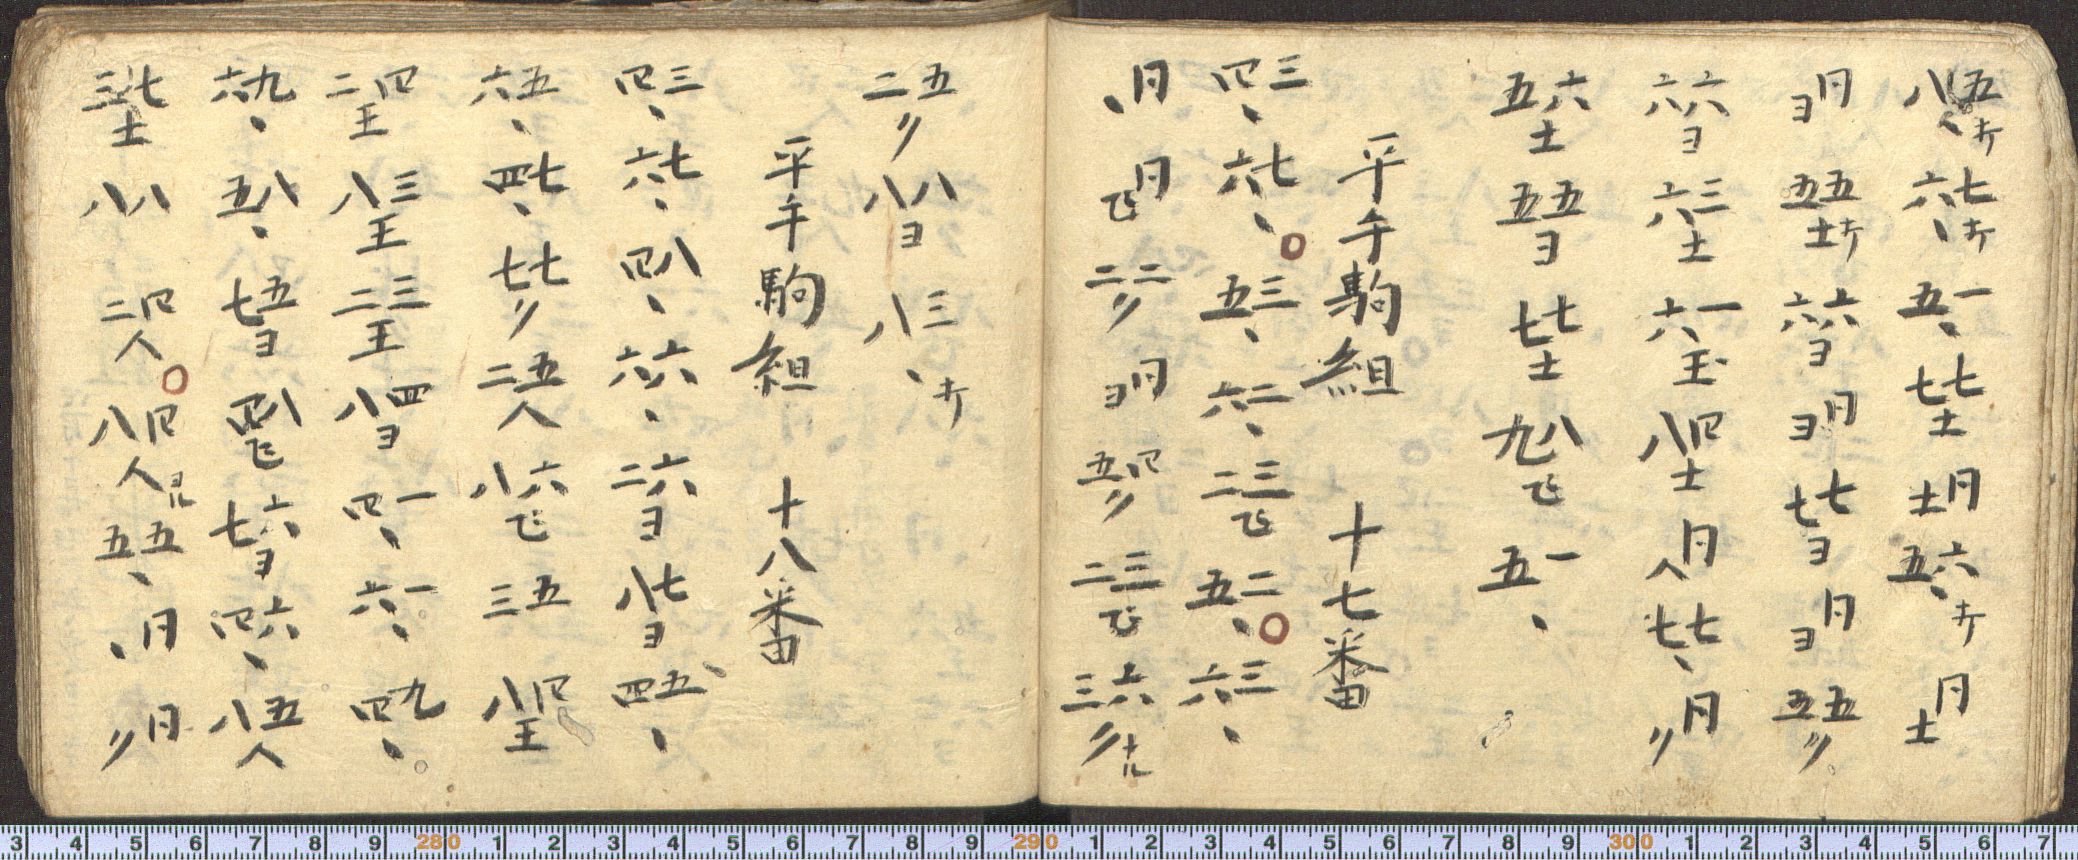 五八、ナ 七六、ナ 一五、 七七士 月士 六五、ナ 月士
月ヨ 五五士ナ 六六ヨ 月ヨ 七七ヨ 月ヨ 五五〃
六六ヨ 三六士 一六玉 四八士 月人 七七、 月〃
六五士 五五ヨ 七七士 八九飞 一五、
平手駒組 十七番
三四、 七六、 三五、 二六、 三二飞 二五、 三六、
月、 月飞 二二〃 月ヨ 四五〃 三二飞 六三〃ナル
五二〃 八八ヨ 三八、ナ
平手駒組 十八番
三四、 七六、 八四、 六六、 六二ヨ 七八ヨ 五四、
五六、 七四、 七七〃 五二人 六八飞 五三 四八王
四二王 三八王 三二王 四八ヨ 一四、 一六、 九四、
九六、 八五、 五七ヨ 八四飞 六七ヨ 六四、 五八人
七三士 八八 四二人 四八人ヨル 五五、 月、 月〃